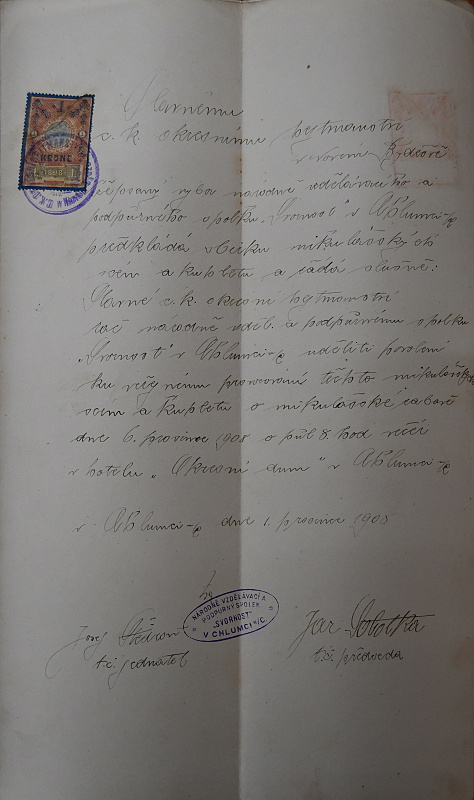 Slavnému
c. k. okresnímu hejtmanství
v Novém Bydžově
KRONE
1898
podepsaný výbor národně vzdělávacího a
podpůrného spolku „Svornost" v Chlumci n/C
předkládá sbírku mikulášských
scen a kupletů a žádá slušně:
Slavné c. k. okresní hejtmanství
rač národně vzděl. a podpůrnému spolku
„Svornost" v Chlumci n/C uděliti povolení
ku veřejnému provozování těchto mikulášských
scen a kupletů o mikulášské zábavě
dne 6. prosince 1905 o půl 8. hod večer
v hotelu „Okresní dům" v Chlumci n/C
v Chlumci n/C dne 1. prosince 1905
Za
NÁRODNĚ VZDĚLÁVACÍ A
PODPŮRNÝ SPOLEK
"SVORNOST"
V CHLUMCI N/C.
Josef
t. č. jednatel
Jar
t. č. předseda